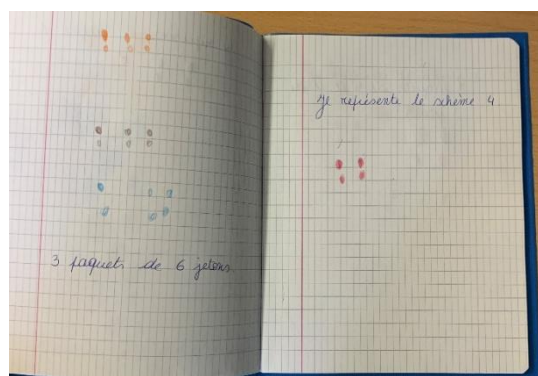 3 paquets de 6 jetons
Je représente le schème 4